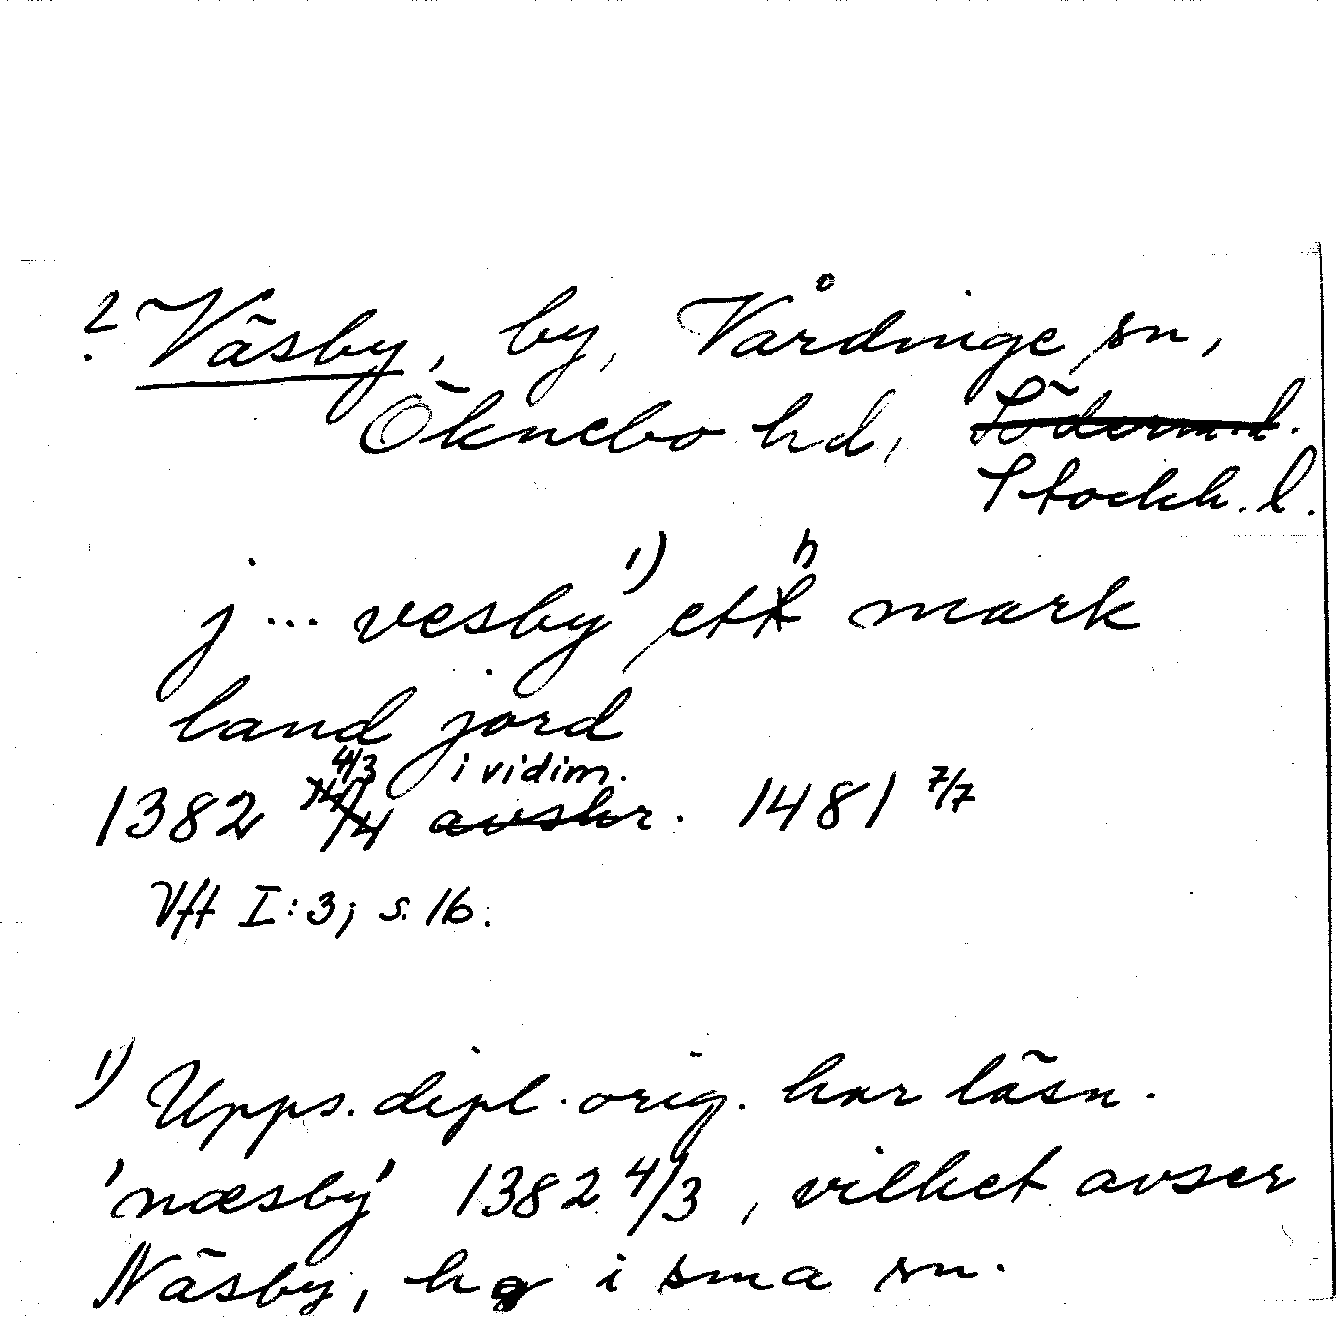 ? Väsby, by, Vårdinge sn,
Öknebo hd, Söderm.l.
Stockh. l.
j... vesby 1) etth mark
land jord
1382 4/3 i vidim. avskr. 1481 7/7
Vft I:3; s. 16.
1) Upps. dipl. orig. har läsn.
'næsby' 1382 4/3, vilket avser
Näsby, hg i sma sn.